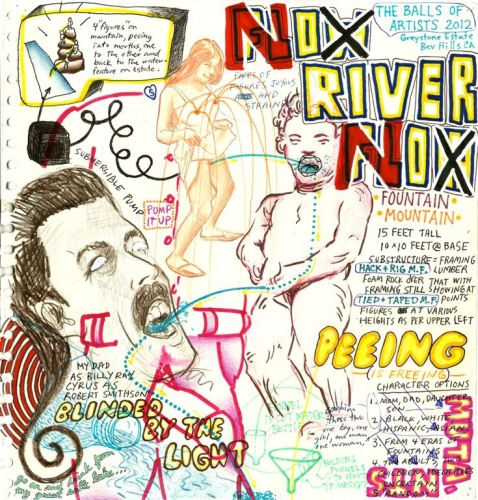 4 "figures" on
mountain, peeing
into mouths, one
to the other and
back to the water-
feature on estate.
NOX
RIVER
NOX
THE BALLS OF
ARTISTS 2012
Greystone Estate
Bev Hills CA
FACES OF
FIGURES JOYOUS
AND
STRAIN
SUBMERSIBLE PUMP
PUMP
IT UP
FOUNTAIN
MOUNTAIN
15 FEET TALL
10 x 10 FEET @ BASE
SUBSTRUCTURE = FRAMING
HACK + RIG M.F. LUMBER
FOAM ROCK OVER THAT WITH
FRAMING STILL SHOWING AT
TIED + TAPED M.F. POINTS
FIGURES AT VARIOUS
HEIGHTS AS PER UPPER LEFT
PEEING
IS FREEING
CHARACTER OPTIONS
1. MOM, DAD, DAUGHTER
SON
2. BLACK, WHITE
HISPANIC, ASIAN
3. FROM 4 ERAS OF
FOUNTAINS
4. TWO ADULTS, TWO
CHILDREN IDENTITIES
UNCERTAIN
5. RANDOM
MY DAD
AS BILLY RAY
CYRUS AS
ROBERT SMITHSON
BLINDED
BY THE
LIGHT
go on and drink from
my great salt lake...